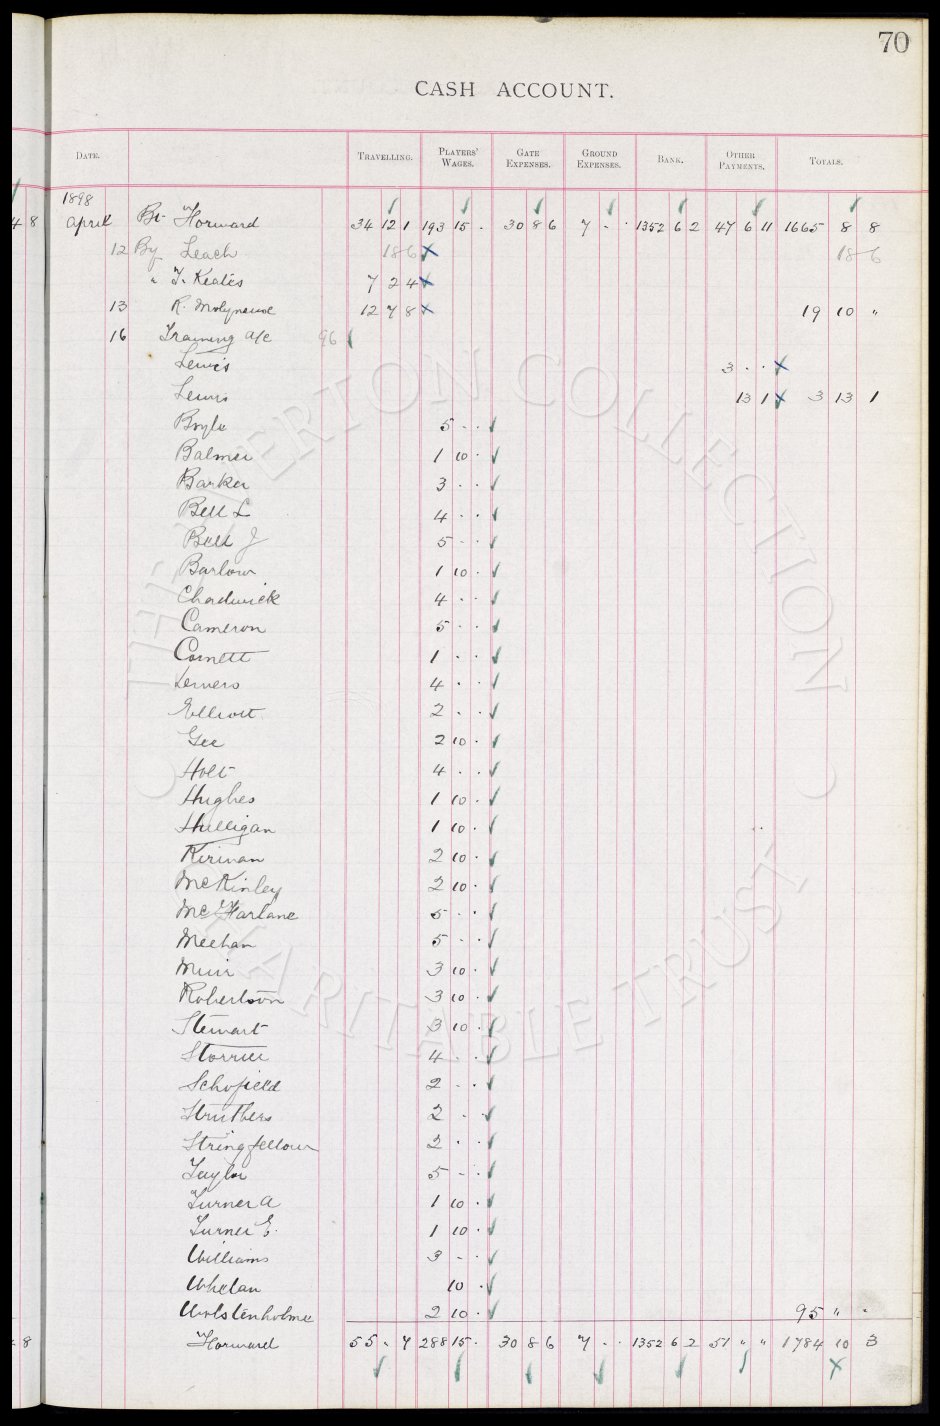 70
CASH ACCOUNT.
DATE. TRAVELLING. PLAYERS' WAGES. GATE EXPENSES. GROUND EXPENSES. BANK. OTHER PAYMENTS. TOTALS.
1898
4 8 April Bt Forward 34 12 1 193 15 . 30 8 6 7 - . 1352 6 2 47 6 11 1665 8 8
12 By Leach 18 6 18 6
" T. Keates 7 2 4
13 R. Molyneux 12 7 8 19 10 "
16 Training a/c 96
Lewis 3 . .
Lewis 13 1 3 13 1
Boyle 5 - .
Balmer 1 10 .
Barker 3 . .
Bell L 4 - .
Bell J 5 - .
Barlow 1 10 .
Chadwick 4 - .
Cameron 5 - .
Cornett 1 . .
4 . .
Elliott 2 . .
Gee 2 10 .
Holt 4 . .
Hughes 1 10 .
Hulligan 1 10 .
Kirwan 2 10 .
McKinley 2 10 .
McFarlane 5 - .
Meehan 5 - .
Muir 3 10 .
Robertson 3 10 .
Stewart 3 10 .
Storrier 4 . .
Schofield 2 - .
Struthers 2 . .
Stringfellow 2 . .
Taylor 5 - .
Turner A 1 10 .
Turner E. 1 10 .
Williams 3 - .
Whelan 10 .
Wolstenholme 2 10 . 95 " "
8 Forward 55 - 7 288 15 . 30 8 6 7 - . 1352 6 2 51 " " 1784 10 3
THE EVERTON COLLECTION
CHARITABLE TRUST